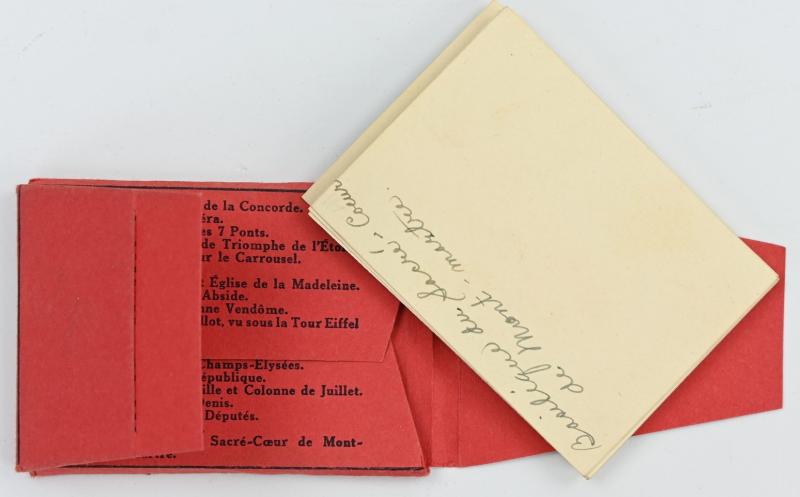 de la Concorde.
éra.
es 7 Ponts.
de Triomphe de l'Éto
ur le Carrousel.
t Église de la Madeleine.
Abside.
nne Vendôme.
llot, vu sous la Tour Eiffel
Champs-Elysées.
épublique.
ille et Colonne de Juillet.
Denis.
Députés.
Sacré-Cœur de Mont-
artre.
Basilique du Sacré-Cœur
de Mont-martre